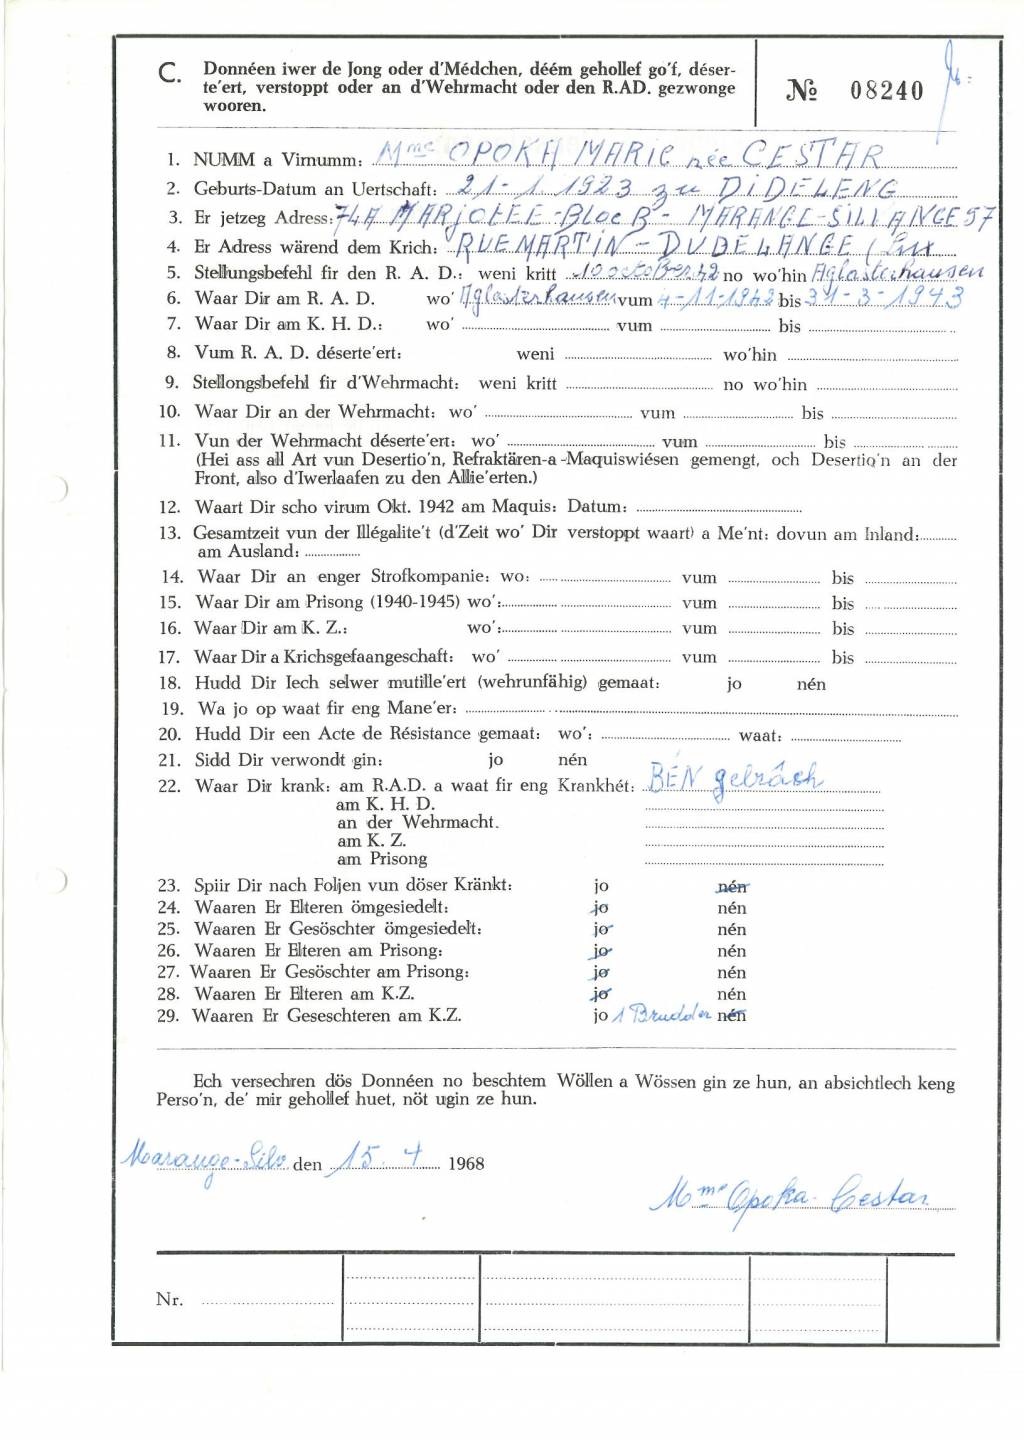 C. Donnéen iwer de Jong oder d'Médchen, déém gehollef go'f, déser-
te'ert, verstoppt oder an d'Wehrmacht oder den R.AD. gezwonge
wooren.
№ 08240
1. NUMM a Virnumm: Mme OPOKA MARIE née CESTAR
2. Geburts-Datum an Uertschaft: 21-1 1923 zu DIDELENG
3. Er jetzeg Adress: 74A MARJOLEE-Bloc B- MARANGE-SILVANGE 57
4. Er Adress wärend dem Krich: RUE MARTIN-DUDELANGE (Lux
5. Stellungsbefehl fir den R. A. D.: weni kritt 10 october 42 no wo'hin Aglasterhausen
6. Waar Dir am R. A. D. wo' Aglasterhausen vum 4-11-1942 bis 31-3-1943
7. Waar Dir am K. H. D.: wo' vum bis
8. Vum R. A. D. déserte'ert: weni wo'hin
9. Stellongsbefehl fir d'Wehrmacht: weni kritt no wo'hin
10. Waar Dir an der Wehrmacht: wo' vum bis
11. Vun der Wehrmacht déserte'ert: wo' vum bis
(Hei ass all Art vun Desertio'n, Refraktären-a-Maquiswiésen gemengt, och Desertio'n an der
Front, also d'Iwerlaafen zu den Allie'erten.)
12. Waart Dir scho virum Okt. 1942 am Maquis: Datum:
13. Gesamtzeit vun der Illégalite't (d'Zeit wo' Dir verstoppt waart) a Me'nt: dovun am Inland:
am Ausland:
14. Waar Dir an enger Strofkompanie: wo: vum bis
15. Waar Dir am Prisong (1940-1945) wo': vum bis
16. Waar Dir am K. Z.: wo': vum bis
17. Waar Dir a Krichsgefaangeschaft: wo' vum bis
18. Hudd Dir Iech selwer mutille'ert (wehrunfähig) gemaat: jo nén
19. Wa jo op waat fir eng Mane'er:
20. Hudd Dir een Acte de Résistance gemaat: wo': waat:
21. Sidd Dir verwondt gin: jo nén
22. Waar Dir krank: am R.A.D. a waat fir eng Krankhét: BÉN gebrâch
am K. H. D.
an der Wehrmacht.
am K. Z.
am Prisong
23. Spiir Dir nach Foljen vun döser Kränkt: jo nén
24. Waaren Er Elteren ömgesiedelt: jo nén
25. Waaren Er Gesöschter ömgesiedelt: jo nén
26. Waaren Er Elteren am Prisong: jo nén
27. Waaren Er Gesöschter am Prisong: jo nén
28. Waaren Er Elteren am K.Z. jo nén
29. Waaren Er Geseschteren am K.Z. jo 1 Brudder nén
Ech versechren dös Donnéen no beschtem Wöllen a Wössen gin ze hun, an absichtlech keng
Perso'n, de' mir gehollef huet, nöt ugin ze hun.
Marange-Silv. den 15. 4 1968
Mme Opoka-Cestar
Nr.